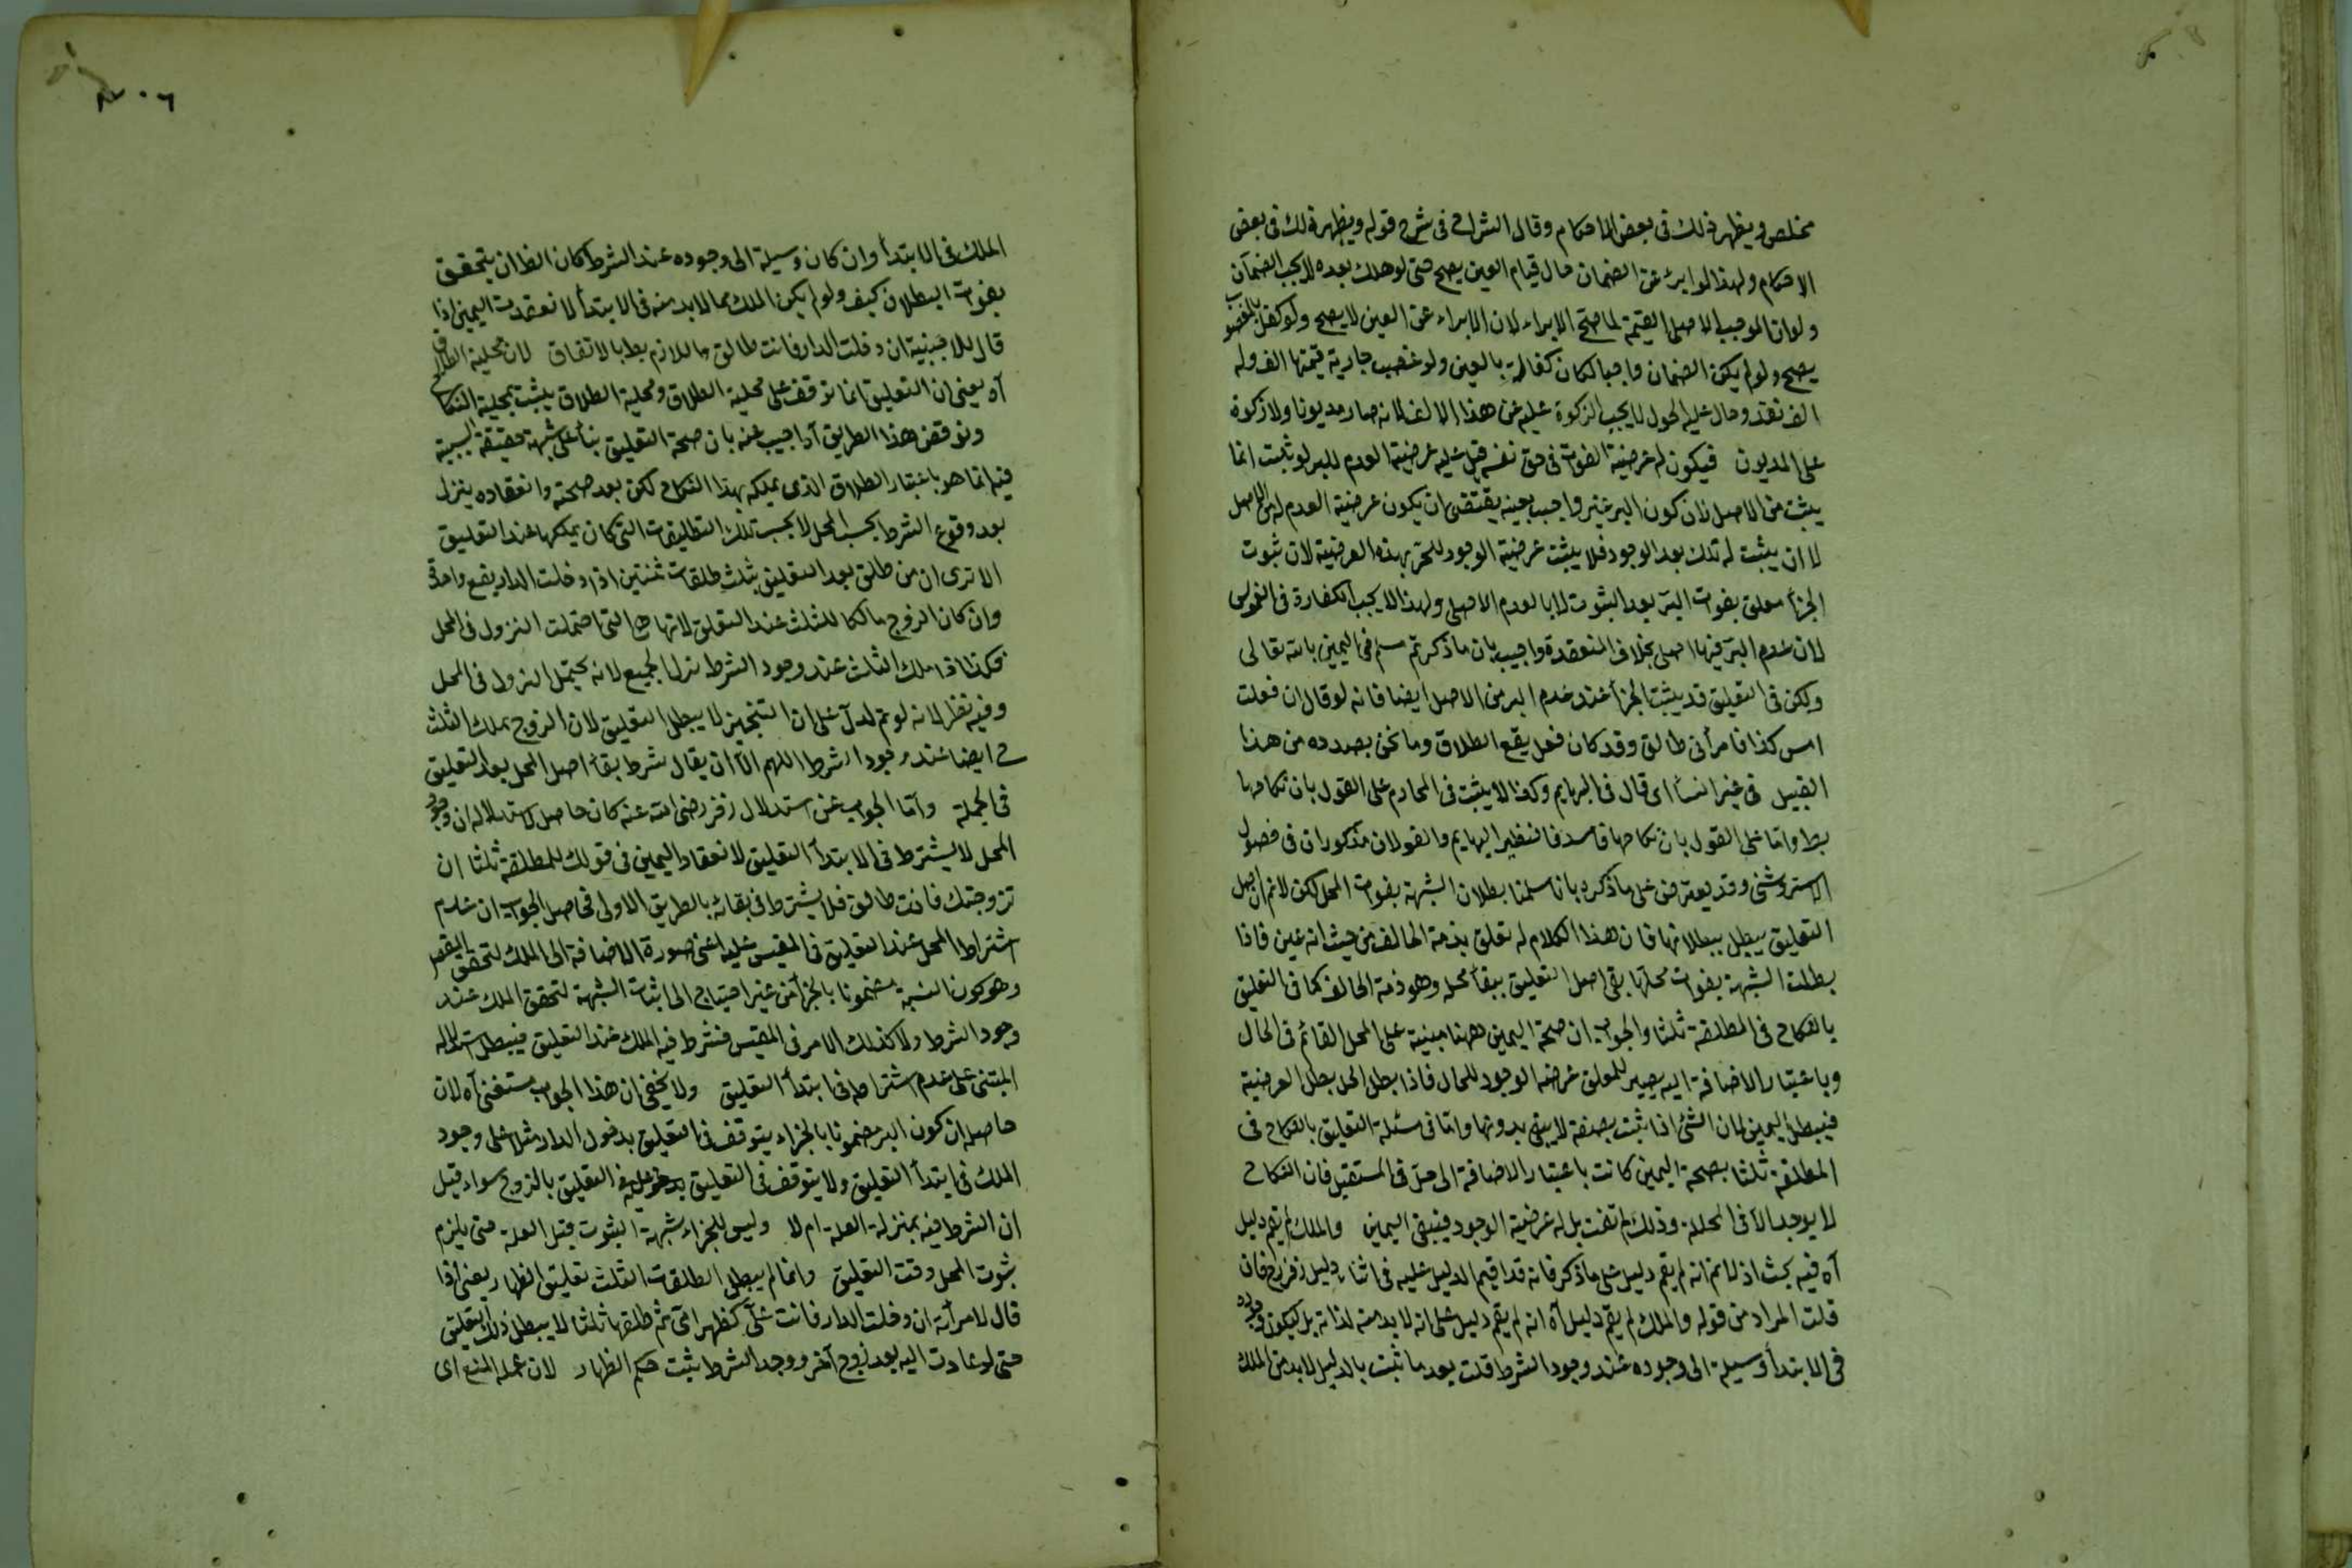 مخلص ويظهر ذلك فى بعض الاحكام وقال الشراح فى شرح قوله ويظهر ذلك فى بعض
الاحكام ولهذا لو ابرئ عن الضمان حال قيام العين يصح حتى لو هلك بعده لا يجب الضمان
ولو ان الموجب الاصلى القيمة لما صح الابراء لان الابراء عن العين لا يصح ولو كفل بالمغصوب
يصح ولو لم يكن الضمان واجبا لكان كفالة بالعين ولو غصب جارية قيمتها الف وله
الف نقد وحال عليه الحول لا يجب الزكوة عليه عن هذا الالف لانه صار مديونا ولا زكوة
على المديون فيكون له عرضية الفوات فى حق نفسه قيل عليه عرضية العدم للبر لو ثبت انما
يثبت من الاصل لان كون البر غير واجب بعينه يقتضى ان يكون عرضية العدم له من الاصل
لا ان يثبت له تلك بعد الوجود فلا يثبت عرضية الوجود للجزء بهذه العرضية لان ثبوت
الجزأ معلق بفوات البر بعد الثبوت لا بالعدم الاصلى ولهذا لا يجب الكفارة فى الغموس
لان عدم البر فيها اصلى بخلاف المنعقدة واجيب بان ما ذكرتم مسلم فى اليمين بالله تعالى
ولكن فى التعليق قد يثبت الجزأ عند عدم البر من الاصل ايضا فانه لو قال ان فعلت
امس كذا فامرأتى طالق وقد كان فعل يقع الطلاق وما نحن بصدده من هذا
القبيل فى غير النسأ اى قال فى البهايم وكذا لا يثبت فى المحارم على القول بان نكاحها
بط واما على القول بان نكاحها فاسد فالنظير البهايم والقولان مذكوران فى فصول
الاستروشنى وقد يعترض على ما ذكره بانا سلمنا بطلان الشبهة بفوات المحل لكن لانم ان اصل
التعليق يبطل ببطلانها فان هذا الكلام له تعلق بذمة الحالف من حيث انه يمين فاذا
بطلت الشبهة بفوات محلها بقى اصل التعليق ببقأ محله وهو ذمة الحالف كما فى التعليق
بالنكاح فى المطلقة ثلثا والجواب ان صحة اليمين ههنا مبنية على المحل القائم فى الحال
وباعتبار الاضافة اليه يصير للمعلق عرضية الوجود للحال فاذا بطل المحل بطل العرضية
فيبطل اليمين لان الشئ اذا ثبت بصفة لا يبقى بدونها واما فى مسئلة التعليق بالنكاح فى
المطلقة ثلثا بصحة اليمين كانت باعتبار الاضافة الى حل فى المستقبل فان النكاح
لا يوجد الا فى المحللة وذلك لم تفت بل له عرضية الوجود فيبقى اليمين والملك لم يقم دليل
آه فيه بحث اذ لانم انه لم يقم دليل على ما ذكر فانه قد اقيم الدليل عليه فى اثناء دليل زفر رح فان
قلت المراد من قوله والملك لم يقم دليل آه انه لم يقم دليل على انه لا بد منه لذاته بل ليكون وجوده
فى الابتدأ وسيلة الى وجوده عند وجود الشرط قلت بعد ما ثبت بالدليل لا بد من الملك
٢٠٦
الملك فى الابتدأ وان كان وسيلة الى وجوده عند الشرط كان الظ ان يتحقق
بفواته البطلان كيف ولو لم يكن الملك مما لا بد منه فى الابتدأ لانعقدت اليمين اذا
قال للاجنبية ان دخلت الدار فانت طالق واللازم بط بالاتفاق لان محلية الطلاق
آه يعنى ان التعليق انما توقف على محلية الطلاق ومحلية الطلاق يثبت بمحلية النكاح
ونوقض هذا الطريق آه اجيب عنه بان صحة التعليق بنأ على شبهة حقيقة السببية
فيه انما هو باعتبار الطلاق الذى يملكه بهذا النكاح لكن بعد صحته وانعقاده ينزل
بعد وقوع الشرط بحسب المحل لا بحسب تلك التطليقات التى كان يملكها عند التعليق
الا ترى ان من طلق بعد التعليق بثلث طلقات ثنتين اذا دخلت الدار يقع واحدة
وان كان الزوج مالكا للثلث عند التعلق لانها هى التى احتملت النزول فى المحل
فكذا اذا ملك الثلث عند وجود الشرط نزل الجميع لانه يحتمل النزول فى المحل
وفيه نظر لانه لو تم لدل على ان التنجيز لا يبطل التعليق لان الزوج يملك الثلث
ح ايضا عند وجود الشرط اللهم الا ان يقال شرط بقأ اصل المحل بعد التعليق
فى الجملة واما الجواب عن استدلال زفر رضى الله عنه كان حاصل استدلاله ان وجود
المحل لا يشترط فى الابتدأ التعليق لانعقاد اليمين فى قولك للمطلقة ثلثا ان
تزوجتك فانت طالق فلا يشترط فى بقائه بالطريق الاولى فحاصل الجواب ان عدم
اشتراط المحل عند التعليق فى المقيس عليه اعنى صورة الاضافة الى الملك لتحقق المقصود
وهو كون النسبة مضمونا بالجزأ من غير احتياج الى اثبات الشبهة لتحقق الملك عند
وجود الشرط ولا كذلك الامر فى المقيس فشرط فيه الملك عند التعليق فيبطل استدلاله
المبتنى على عدم اشتراطه فى ابتدأ التعليق ولا يخفى ان هذا الجواب مستغنى آه لان
حاصله ان كون البر مضمونا بالجزاء يتوقف فى التعليق بدخول الدار مثلا على وجود
الملك فى ابتدأ التعليق ولا يتوقف فى التعليق بالتزوج سواء قيل
ان الشرط فيه بمنزلة العلة ام لا وليس للجزاء شبهة الثبوت قبل العلة حتى يلزم
ثبوت المحل وقت التعليق وانما لم يبطل الطلقات الثلث تعليق الظهار يعنى اذا
قال لامرأته ان دخلت الدار فانت على كظهر امى ثم طلقها ثلثا لا يبطل ذلك التعليق
حتى لو عادت اليه بعد زوج آخر ووجد الشرط يثبت حكم الظهار لان عمله المنع اى